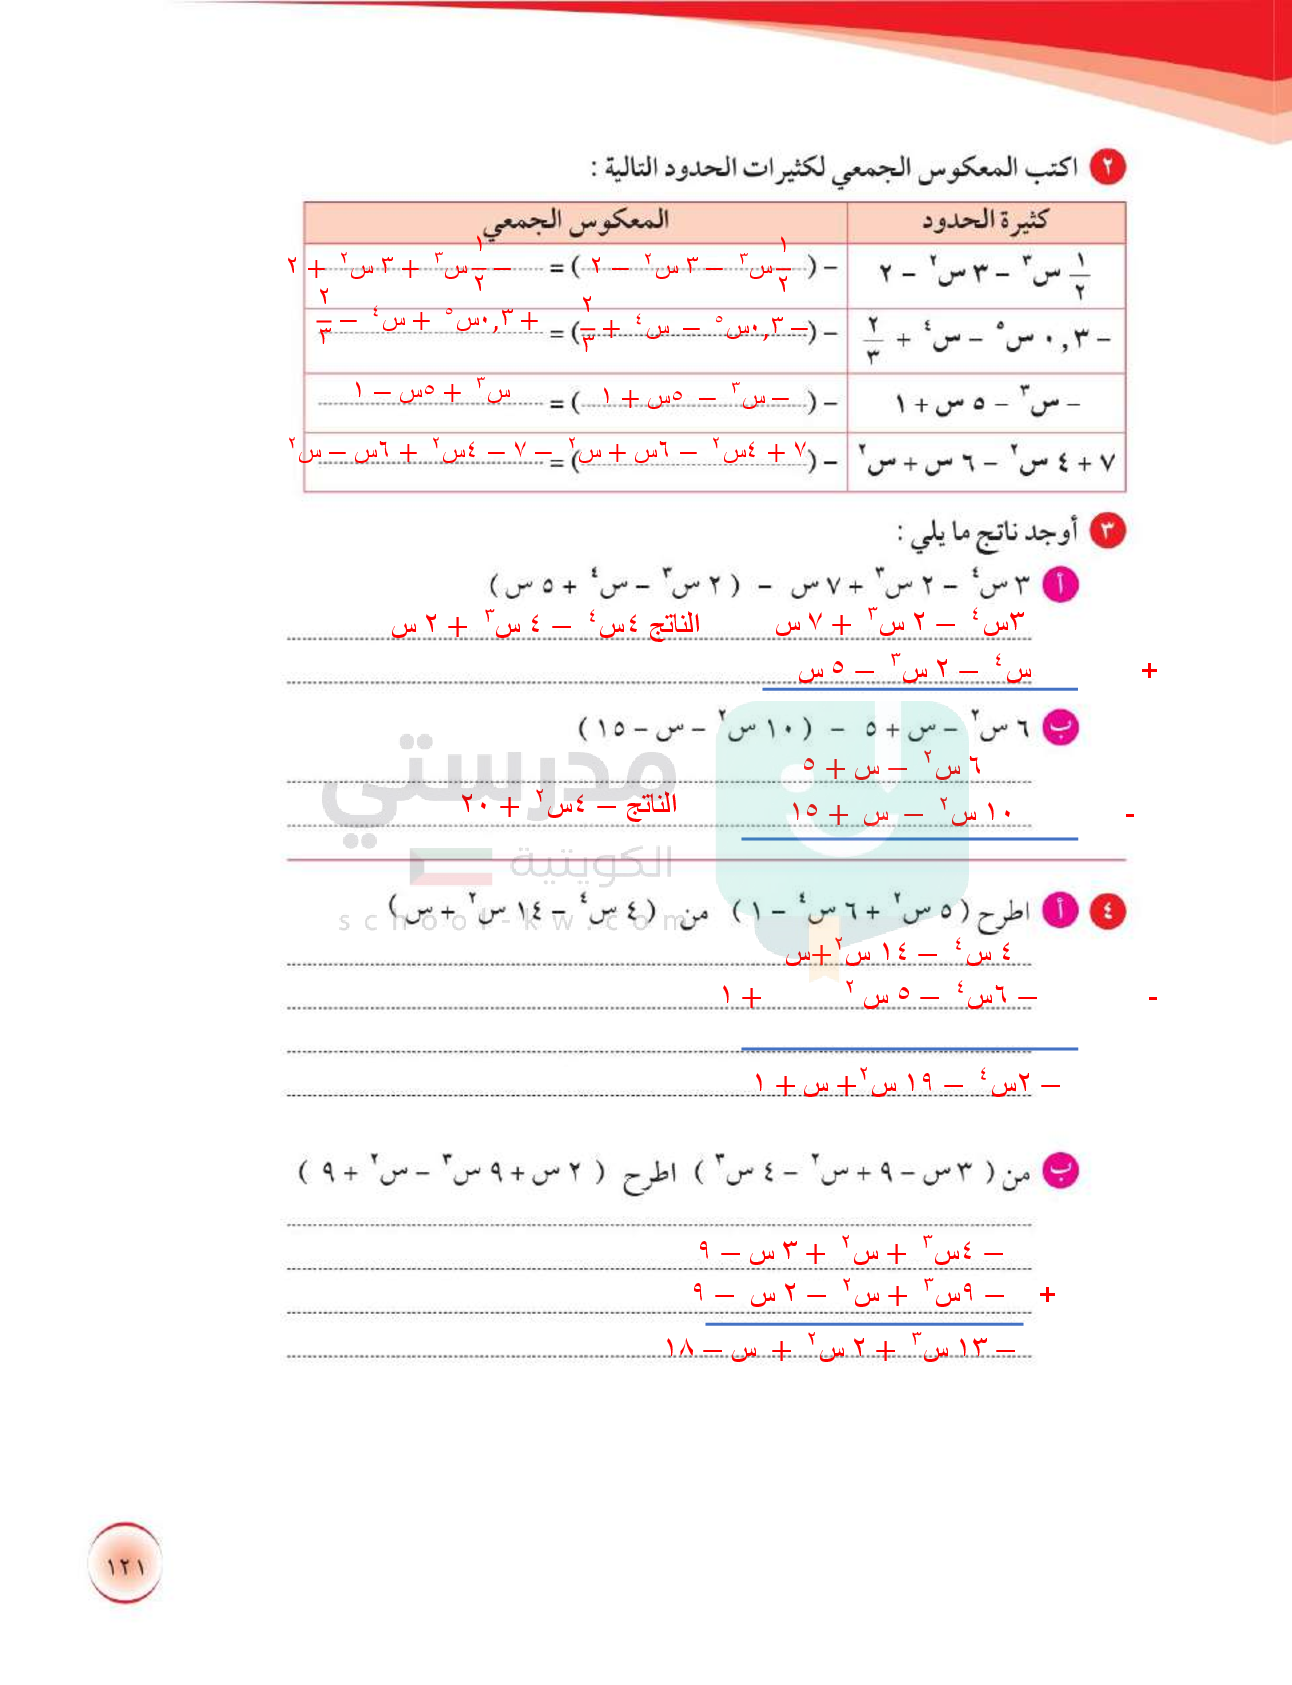 ٢ اكتب المعكوس الجمعي لكثيرات الحدود التالية :
كثيرة الحدود المعكوس الجمعي
١/٢ س^٣ − ٣ س^٢ − ٢ − (١/٢ س^٣ − ٣ س^٢ − ٢) = − ١/٢ س^٣ + ٣ س^٢ + ٢
− ٠,٣ س^٥ − س^٤ + ٢/٣ − (− ٠,٣س^٥ − س^٤ + ٢/٣) = + ٠,٣س^٥ + س^٤ − ٢/٣
− س^٣ − ٥ س + ١ − (− س^٣ − ٥س + ١) = س^٣ + ٥س − ١
٧ + ٤ س^٢ − ٦ س + س^٢ − (٧ + ٤س^٢ − ٦س + س^٢) = − ٧ − ٤س^٢ + ٦س − س^٢
٣ أوجد ناتج ما يلي :
أ ٣ س^٤ − ٢ س^٣ + ٧ س − ( ٢ س^٣ − س^٤ + ٥ س )
٣س^٤ − ٢ س^٣ + ٧ س الناتج ٤س^٤ − ٤ س^٣ + ٢ س
+ س^٤ − ٢ س^٣ − ٥ س
ب ٦ س^٢ − س + ٥ − ( ١٠ س^٢ − س − ١٥ )
٦ س^٢ − س + ٥
- ١٠ س^٢ − س + ١٥ الناتج − ٤س^٢ + ٢٠
مدرستي
الكويتية
school-kw.com
٤ أ اطرح ( ٥ س^٢ + ٦ س^٤ − ١ ) من ( ٤ س^٤ − ١٤ س^٢ + س )
٤ س^٤ − ١٤ س^٢ +س
- − ٦س^٤ − ٥ س^٢ + ١
− ٢س^٤ − ١٩ س^٢ + س + ١
ب من ( ٣ س − ٩ + س^٢ − ٤ س^٣ ) اطرح ( ٢ س + ٩ س^٣ − س^٢ + ٩ )
− ٤س^٣ + س^٢ + ٣ س − ٩
+ − ٩س^٣ + س^٢ − ٢ س − ٩
− ١٣ س^٣ + ٢ س^٢ + س − ١٨
١٢١